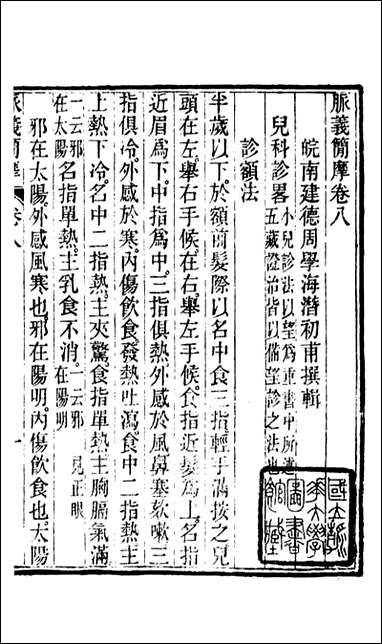 脈義簡摩卷八
皖南建德周學海潛初甫撰輯
兒科診畧 小兒診法以望為重書中所述
五臟證治皆以備望診之法也
診額法
半歲以下於額前髮際以名中食三指輕手滿按之兒
頭在左舉右手候在右舉左手候食指近髮為上名指
近眉為下中指為中三指俱熱外感於風鼻塞欬嗽三
指俱冷外感於寒內傷飲食發熱吐瀉食中二指熱主
上熱下冷名中二指熱主夾驚食指單熱主胸膈氣滿
一云邪在太陽 名指單熱主乳食不消 一云邪在陽明 見正眼
邪在太陽外感風寒也邪在陽明內傷飲食也太陽
脈義簡摩 卷八 一
國立
大學
圖書
館藏